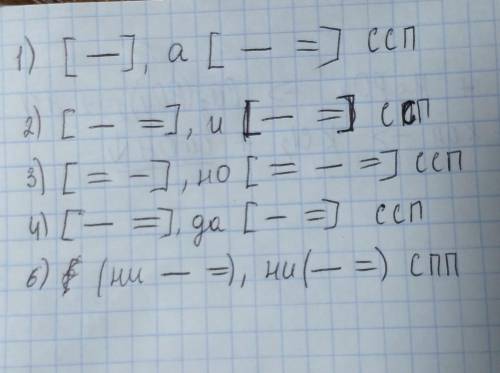 1) [ — ], а [ — = ] ССП
2) [ — = ], и [ — = ] ССП
3) [ = — ], но [ = — = ] ССП
4) [ — = ], да [ — = ] ССП
6) (ни — = ), ни ( — = ) СПП